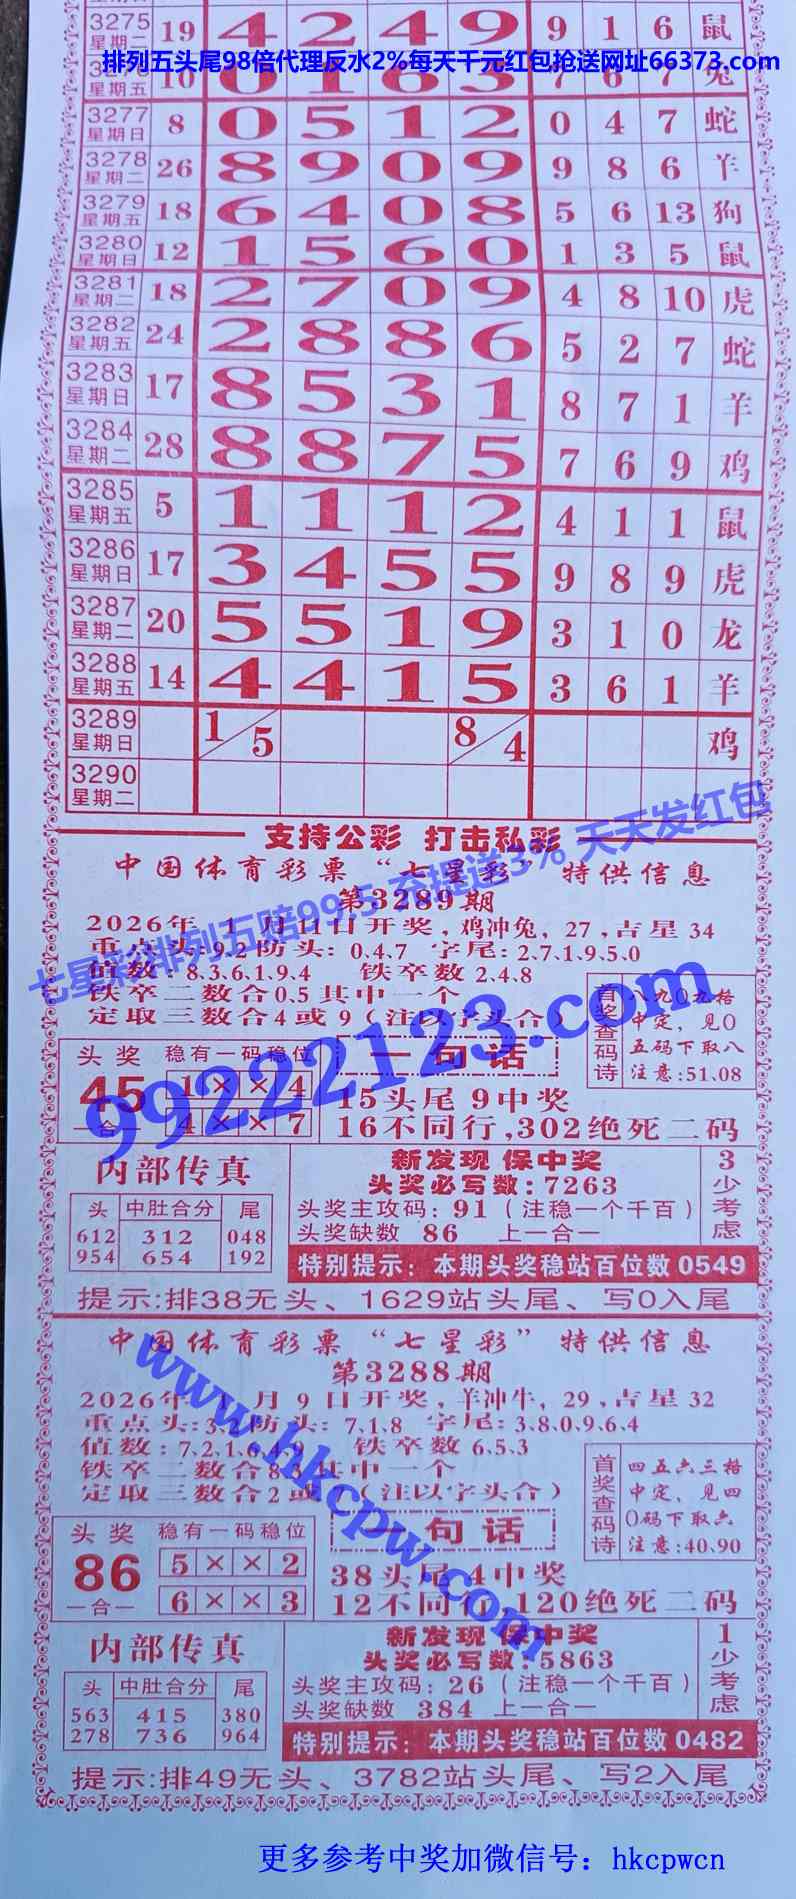 3275 星期二 19 4 2 4 9 9 1 6 鼠
排列五头尾98倍代理反水2%每天千元红包抢送网址66373.com
星期五 10 0 1 6 3 7 6 7 兔
3277 星期日 8 0 5 1 2 0 4 7 蛇
3278 星期二 26 8 9 0 9 9 8 6 羊
3279 星期五 18 6 4 0 8 5 6 13 狗
3280 星期日 12 1 5 6 0 1 3 5 鼠
3281 星期二 18 2 7 0 9 4 8 10 虎
3282 星期五 24 2 8 8 6 5 2 7 蛇
3283 星期日 17 8 5 3 1 8 7 1 羊
3284 星期二 28 8 8 7 5 7 6 9 鸡
3285 星期五 5 1 1 1 2 4 1 1 鼠
3286 星期日 17 3 4 5 5 9 8 9 虎
3287 星期二 20 5 5 1 9 3 1 0 龙
3288 星期五 14 4 4 1 5 3 6 1 羊
3289 星期日 1/5 8/4 鸡
3290 星期二
支持公彩 打击私彩
七星彩排列五赔99.5 充提送3% 天天发红包
中国体育彩票“七星彩”特供信息
第3289期
2026年 1 月11日开奖,鸡冲兔,27,吉星34
重点头:9.2防头:0.4.7 字尾:2.7.1.9.5.0
值数:8.3.6.1.9.4 铁卒数2.4.8
铁卒二数合0.5其中一个
定取三数合4或9(注以字头合)
首奖查码诗
八九0九格
中定,见0
五码下取八
注意:51.08
99222123.com
头奖 稳有一码稳位
45 1××4
一合一 4××7
一句话
15头尾9中奖
16不同行,302绝死二码
内部传真
头 中肚合分 尾
612 312 048
954 654 192
新发现 保中奖
头奖必写数:7263
头奖主攻码:91(注稳一个千百)
头奖缺数 86 上一合一
3少考虑
特别提示:本期头奖稳站百位数0549
提示:排38无头、1629站头尾、写0入尾
中国体育彩票“七星彩”特供信息
第3288期
2026年 月 9 日开奖,羊冲牛,29,吉星32
重点头:3. 防头:7.1.8 字尾:3.8.0.9.6.4
值数:7.2.1.6.4.9 铁卒数6.5.3
铁卒二数合8.3其中一个
定取三数合2或 (注以字头合)
首奖查码诗
四五六三格
中定,见四
0码下取六
注意:40.90
www.hkcpw.com
头奖 稳有一码稳位
86 5××2
一合一 6××3
一句话
38头尾4中奖
12不同行,120绝死二码
内部传真
头 中肚合分 尾
563 415 380
278 736 964
新发现 保中奖
头奖必写数:5863
头奖主攻码:26(注稳一个千百)
头奖缺数 384 上一合一
1少考虑
特别提示:本期头奖稳站百位数0482
提示:排49无头、3782站头尾、写2入尾
更多参考中奖加微信号:hkcpwcn